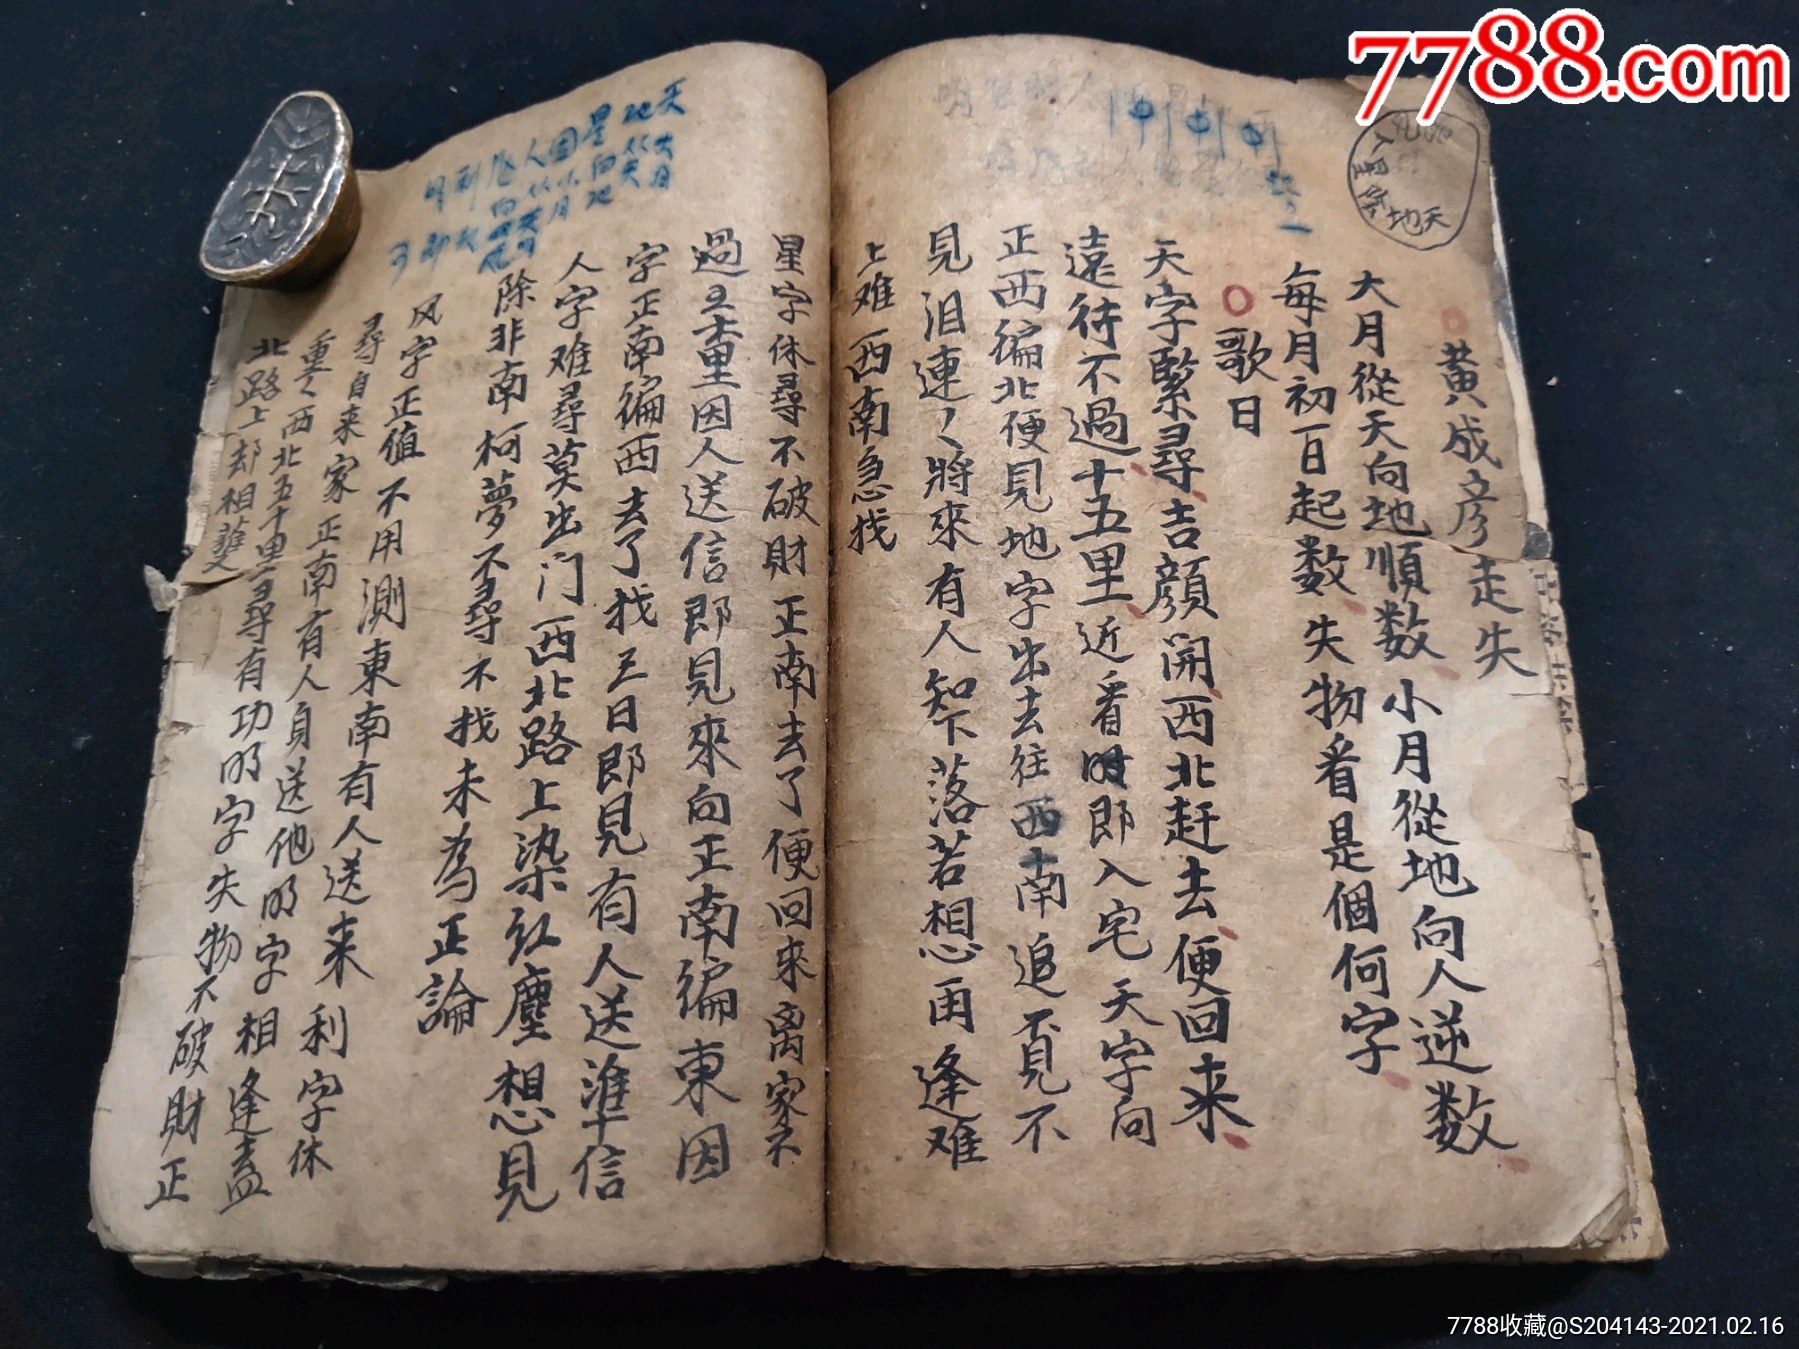 7788.com
黄成彦走失
大月從天向地順数 小月從地向人逆数
每月初一日起数 失物看是個何字
歌曰
天字緊尋吉顔開西北赶去便回来
遠待不過十五里近看時即入宅 天字向
正西徧北便見地字出去往西南追不見不
見泪連く將來有人知下落若想再逢难
上难 西南急找
星字休尋不破財正南去了便回来离家不
過五里因人送信即見來向正南徧東因
字正南徧西去了找三日即見有人送準信
人字难尋莫出门西北路上染红塵想見
除非南柯夢不尋不找未為正論
风字正值不用測東南有人送来利字休
尋自来家正南有人身送他明字相逢盖
重く西北五十里尋有功明字失物不破財正
北路上却相逢
7788收藏@S204143-2021.02.16